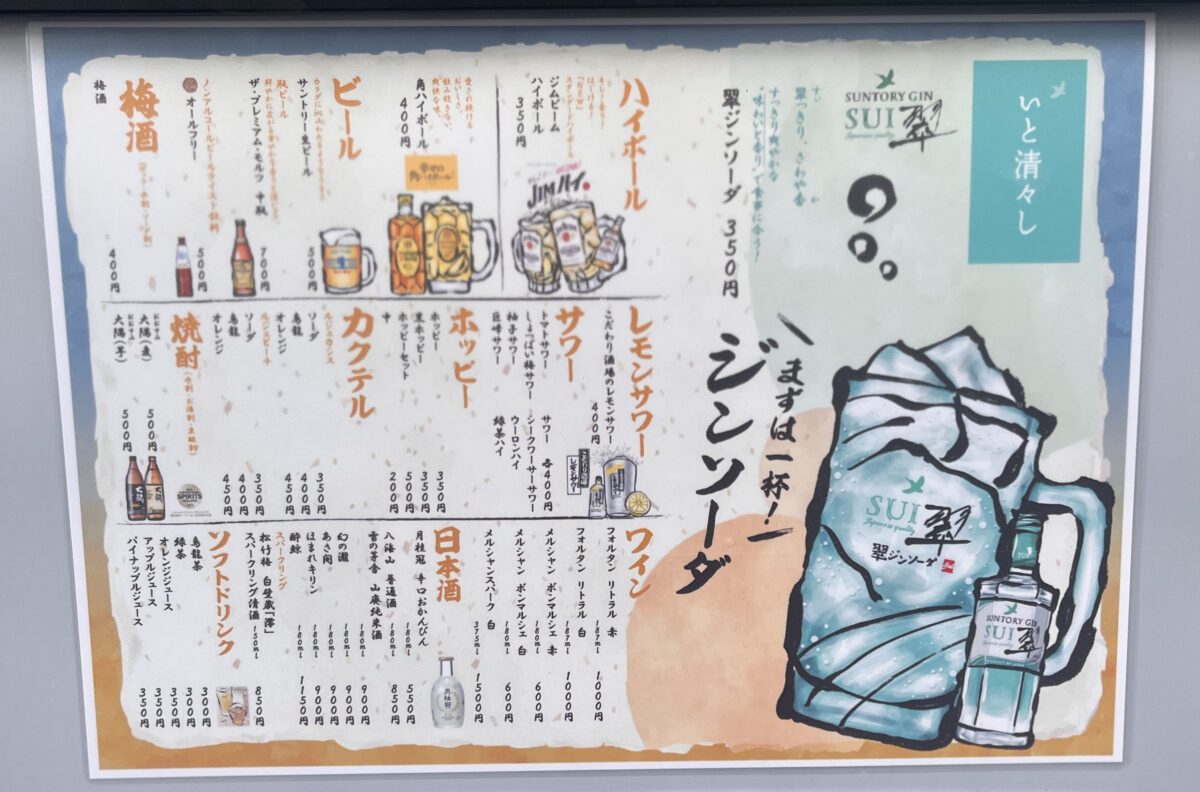 いと清々し
SUNTORY GIN
SUI 翠
Japanese quality
翠っきり、さわや香
すい
か
すっきり爽やかな
"味わいと香り"で食事に合う!
翠ジンソーダ 350円
まずは一杯!
ジンソーダ
SUI 翠
Japanese quality
翠ジンソーダ
SUNTORY GIN
SUI 翠
ハイボール
キレー香り!
はじける!
「NEW」
スタンダードハイボール
ジムビーム
ハイボール
350円
JIMハイ。
愛され続ける
おいしさ。
飲み飽きない、
爽快な味。
角ハイボール
400円
幸せの
角ハイボール
ビール
サントリー生ビール
500円
瓶ビール
ザ・プレミアム・モルツ 中瓶
700円
ノンアルコールビールテイスト飲料
オールフリー
500円
梅酒
梅酒
400円
レモンサワー
こだわり酒場のレモンサワー
400円
サワー
トマトサワー
しょっぱい梅サワー
柚子サワー
巨峰サワー
サワー 各400円
シークワーサーサワー
ウーロンハイ
緑茶ハイ
ホッピー
ホッピー 350円
黒ホッピー 350円
ホッピーセット 500円
中 200円
カクテル
ルジェカシス
ソーダ 350円
烏龍 400円
オレンジ 450円
ルジェピーチ
ソーダ 350円
烏龍 400円
オレンジ 450円
焼酎
(水割・お湯割・炭酸割)
おおすみ
大隅(麦) 500円
おおすみ
大隅(芋) 500円
SPIRITS
ワイン
フォルタン リトラル 赤 187ml 1000円
フォルタン リトラル 白 187ml 1000円
メルシャン ボンマルシェ 赤 180ml 600円
メルシャン ボンマルシェ 白 180ml 600円
メルシャンスパーク 白 375ml 1500円
日本酒
月桂冠 辛口おかんびん 180ml 550円
八海山 普通酒 180ml 850円
雪の茅舎 山廃純米酒 180ml 900円
幻の瀧 180ml 900円
あさ開 180ml 900円
ほまれキリン 180ml 900円
酔鯨 180ml 1150円
スパークリング
松竹梅 白壁蔵「澪」
スパークリング清酒 150ml 850円
ソフトドリンク
烏龍茶 300円
緑茶 300円
オレンジジュース 350円
アップルジュース 350円
パイナップルジュース 350円